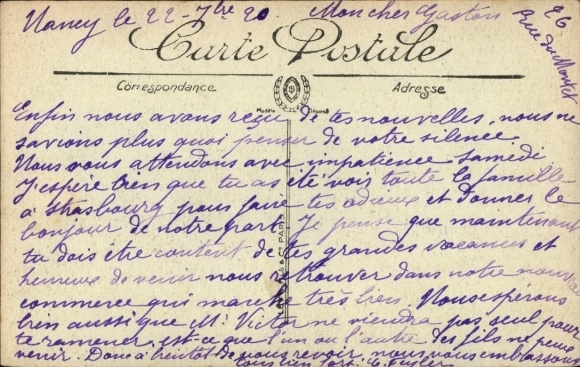 Nancy le 22-7bre 20. Mon cher Gaston
26 Rue du Montet
Carte Postale
Correspondance
Adresse
Modèle Déposé
Enfin nous avons reçu de tes nouvelles, nous ne
savions plus quoi penser de votre silence.
Nous vous attendons avec impatience samedi
J'espère bien que tu as été voir toute la famille
à Strasbourg pour faire tes adieux et donner le
bonjour de notre part. Je pense que maintenant
tu dois être content de tes grandes vacances et
heureux de venir nous retrouver dans notre nouveau
commerce qui marche très bien. Nous espérons
bien aussi que Mr Victor ne viendra pas seul pour
te ramener, est-ce que l'un ou l'autre des fils ne peut
venir. Donc à bientôt de nous revoir, nous vous embrassons
tous bien fort.
PARIS